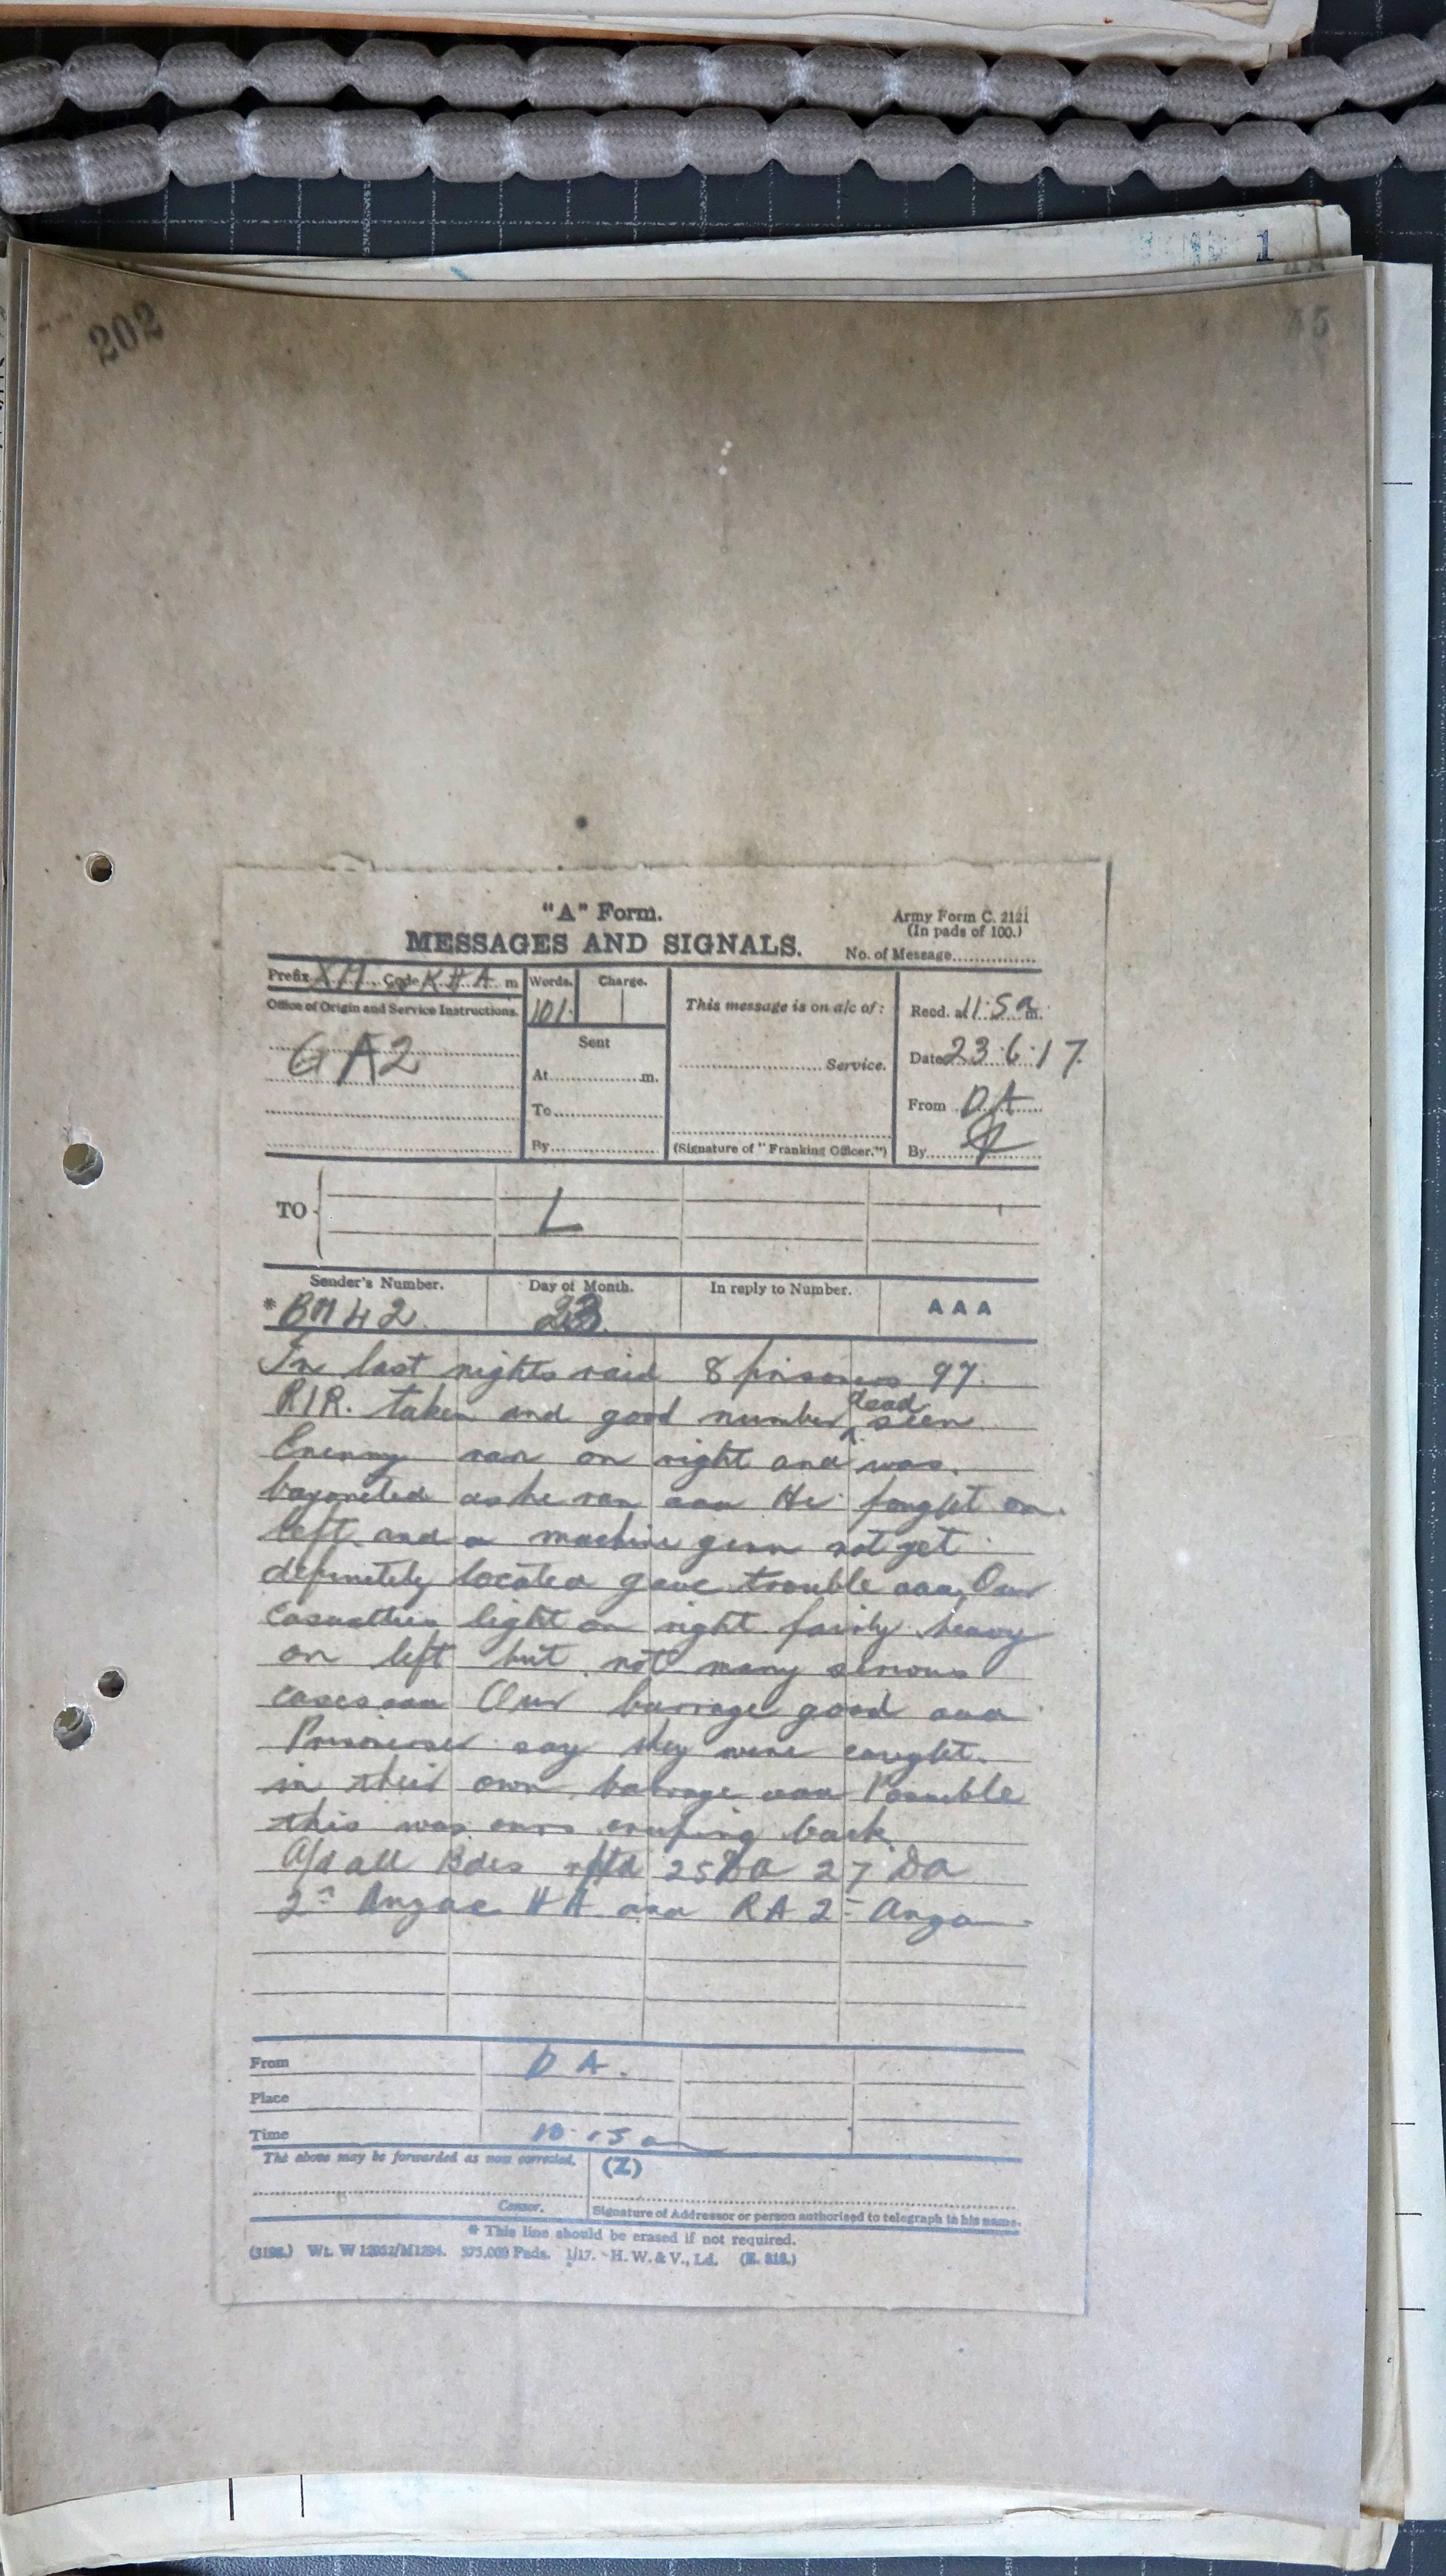 1
202
45
"A" Form.
Army Form C. 2121
(In pads of 100.)
MESSAGES AND SIGNALS.
No. of Message...............
Prefix XM Code KHA m
Words.
Charge.
This message is on a/c of:
Recd. at 11.5 a m.
Office of Origin and Service Instructions.
101
GA2
Sent
Date 23.6.17.
At...............m.
Service.
To...............
From DA
By...............
(Signature of "Franking Officer.")
By
TO
L
Sender's Number.
Day of Month.
In reply to Number.
AAA
* BM42.
23.
In last nights raid 8 prisoners 97.
RIR. taken and good number dead seen
Enemy ran on right and was.
bayoneted as he ran aaa He fought on
left and a machine gun not yet
definitely located gave trouble aaa Our
casualties light on right fairly heavy
on left but not many serious
cases aaa Our barrage good aaa
Prisoners say they were caught
in their own barrage aaa Possible
this was ours creeping back
A/d all Bdes rptd 25 DA 27 DA
2nd Anzac HA aaa RA 2 Anzac
From
DA.
Place
Time
10.15 am
The above may be forwarded as now corrected.
(Z)
Censor.
Signature of Addressor or person authorised to telegraph in his name.
* This line should be erased if not required.
(3198.) Wt. W 12952/M1294. 375,000 Pads. 1/17. H. W. & V., Ld. (E. 818.)